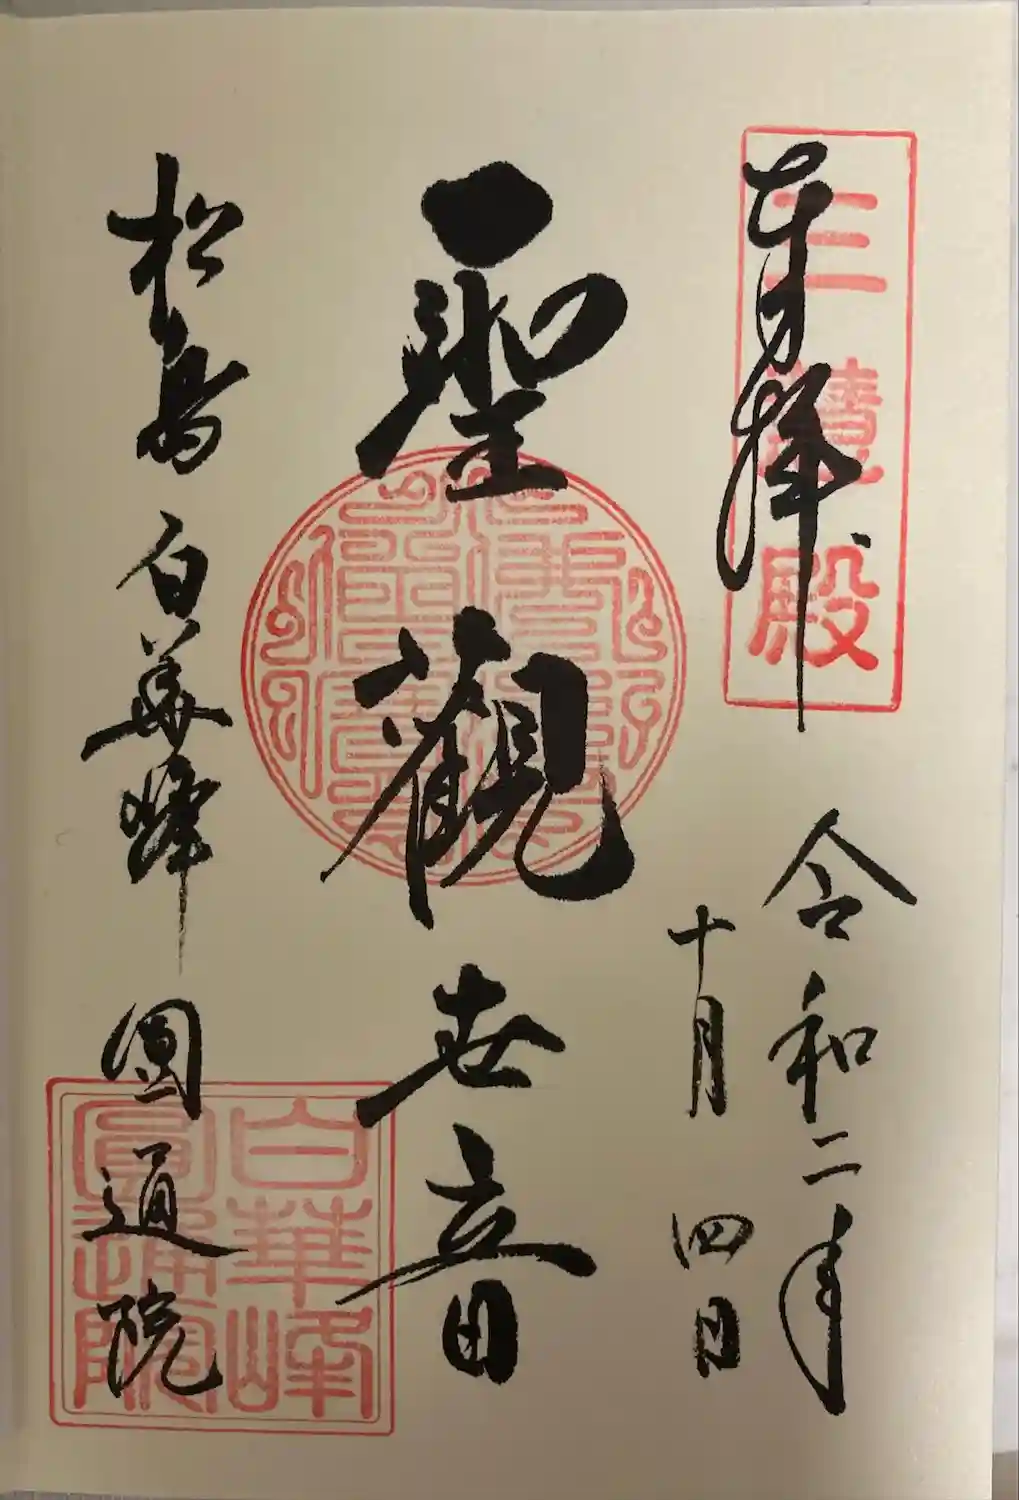 奉拝
三慧殿
令和二年
十月四日
聖觀世音
松島 白華峰 圓通院
白華峰
圓通院